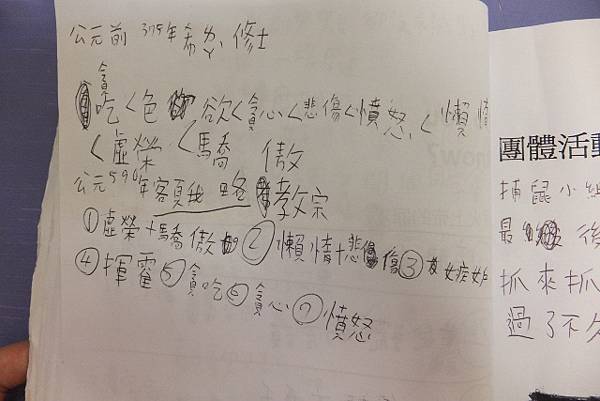 公元前 375年希ㄌㄚˋ修士
貪吃<色欲<貪心<悲傷<憤怒<懶惰
<虛榮<驕傲
公元590年額我略教宗
①虛榮+驕傲②懶惰+悲傷③嫉妒
④揮霍⑤貪吃⑥貪心⑦憤怒
團體活動
捕鼠小組
最後
抓來抓
過了不久